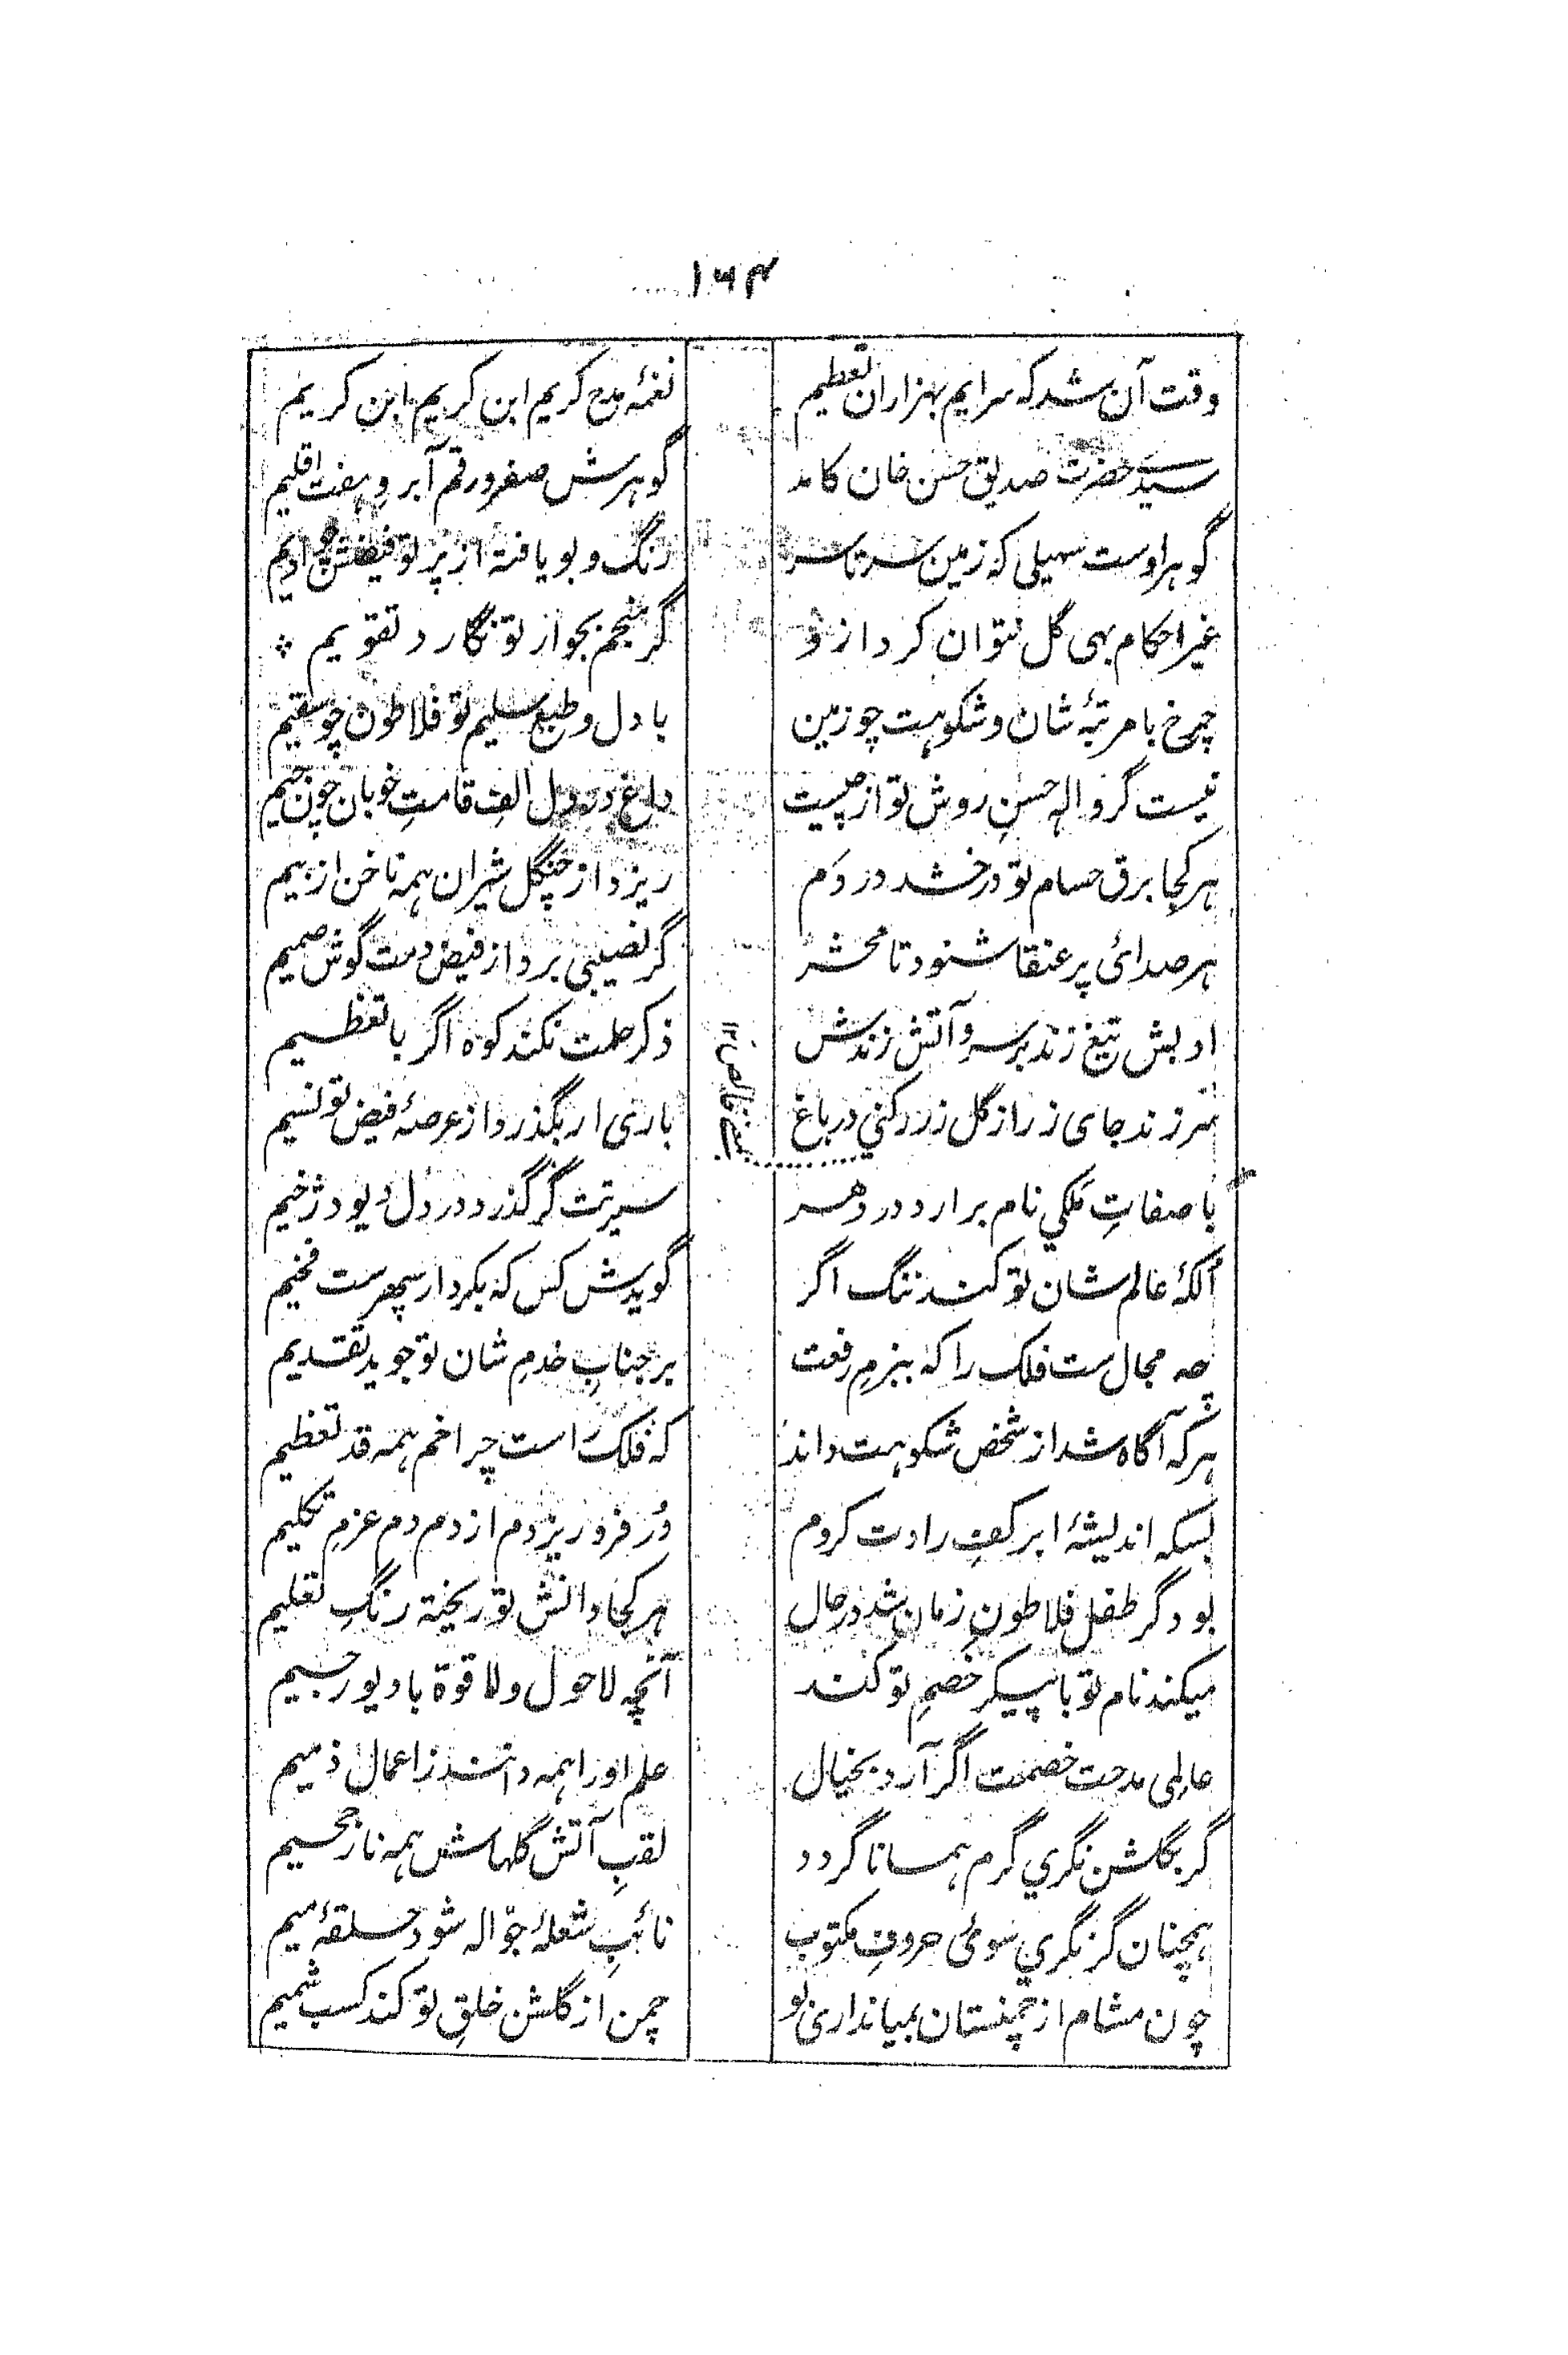 ۱۶۴
وقت آن شد که سرایم بهزاران تعظیم
نغمۂ مدح کریم ابن کریم ابن کریم
سید حضرت صدیق حسن خان کامد
گوهرش صفر و رقم آبروِ هفت اقلیم
گوهر اوست سهیلی که زمین سرتاسر
رنگ و بو یافته از پرتو فیضش چو ادیم
غیر احکام بهی گل نتوان کرد ازو
گر منجم بجوار تو نگارد تقویم
چرخ با مرتبۂ شان و شکوهت چو زمین
با دل و طبع سلیم تو فلاطون چو سقیم
نیست گر والهِ حسنِ روش تو از چیست
داغ در دل الفِ قامتِ خوبان چون جیم
هر کجا برق حسام تو درخشد در دَم
ریزد از چنگل شیران همه ناخن از بیم
هر صدائی پر عنقا شنود تا محشر
گر نصیبی برد از فیض دمت گوش صمیم
ادبش تیغ زند بر سر و آتش زندش
ذکر حلمت نکند کوه اگر با تعظیم
سر زند جای زر از گل زر رکنی در باغ
باری ار بگذرد از عرصۂ فیض تو نسیم
یعنے خالص ۱۲
با صفاتِ مَلَکی نام برارد در دهر
سیرتت گر گذرد در دل دیو دژخیم
اُلکۂ عالم شان تو کند ننگ اگر
گویدش کس که بکردار سپهرست فخیم
چه مجالست فلک را که ببزمِ رفعت
بر جنابِ خدمِ شان تو جوید تقدیم
هر که آگاه شد از شخص شکوهت داند
که فلک راست چرا خم همه قد تعظیم
بسکه اندیشۂ ابر کفِ رادت کردم
دُر فرو ریزدم از دم دم عزمِ تکلیم
بود گر طفل فلاطونِ زمان شد در حال
هر کجا دانش تو ریخته رنگِ تعلیم
میکند نام تو با پیکر خصمِ تو کند
آنچه لا حول ولا قوة با دیو رجیم
عالِمی مدحت خصمت اگر آرد بخیال
علم او را همه دانند ز اعمال ذمیم
گر بگلشن نگری گرم همانا گردد
لقبِ آتش گلهاش همه نار جحیم
همچنان گر نگری سوئی حروفِ مکتوب
نائبِ شعلۂ جوّاله شود حلقۂ میم
چون مشام از چمنستان بمیانداری بو
چمن از گلشن خلقِ تو کند کسب شمیم